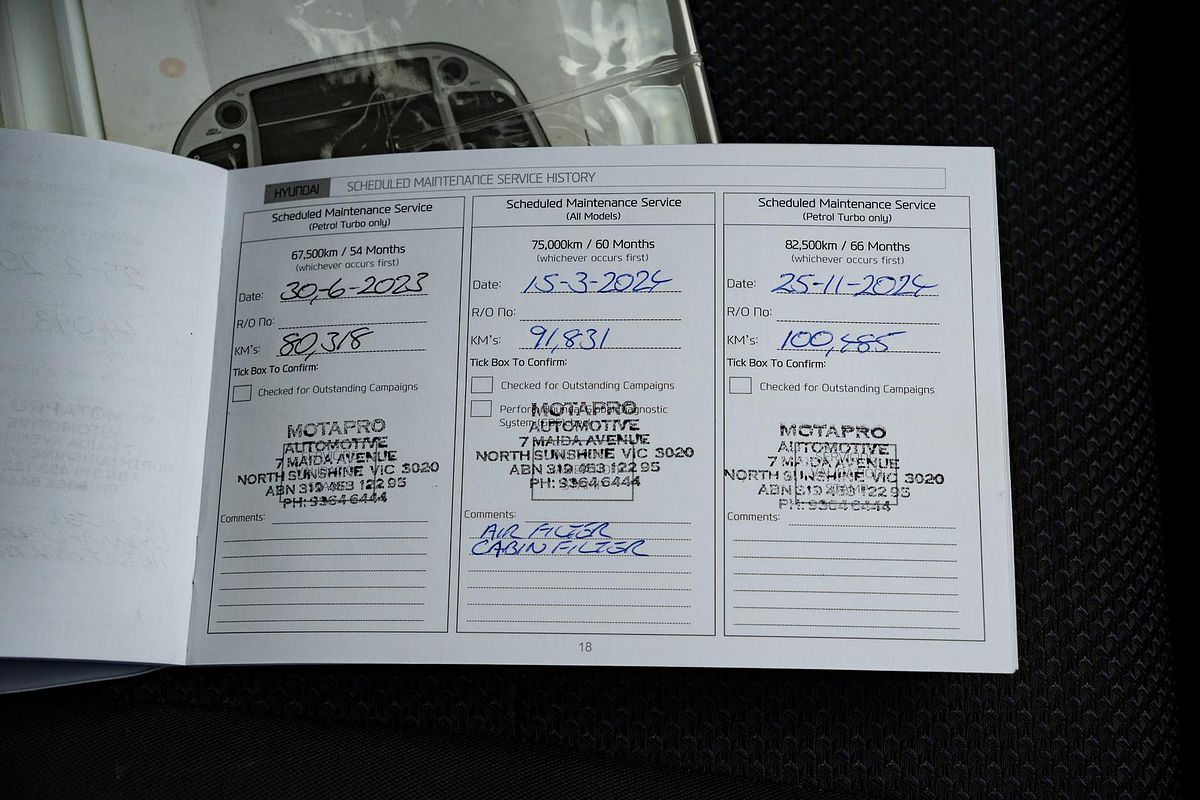 HYUNDAI SCHEDULED MAINTENANCE SERVICE HISTORY
Scheduled Maintenance Service
(Petrol Turbo only)
67,500km / 54 Months
(whichever occurs first)
Date: 30-6-2023
R/O No:
KM's: 80,318
Tick Box To Confirm:
Checked for Outstanding Campaigns
MOTAPRO
AUTOMOTIVE
7 MAIDA AVENUE
NORTH SUNSHINE VIC 3020
ABN 319 453 122 95
PH: 9364 6444
Comments:
Scheduled Maintenance Service
(All Models)
75,000km / 60 Months
(whichever occurs first)
Date: 15-3-2024
R/O No:
KM's: 91,831
Tick Box To Confirm:
Checked for Outstanding Campaigns
MOTAPRO
AUTOMOTIVE
7 MAIDA AVENUE
NORTH SUNSHINE VIC 3020
ABN 319 453 122 95
PH: 9364 6444
Comments:
AIR FILTER
CABIN FILTER
Scheduled Maintenance Service
(Petrol Turbo only)
82,500km / 66 Months
(whichever occurs first)
Date: 25-11-2024
R/O No:
KM's: 100,485
Tick Box To Confirm:
Checked for Outstanding Campaigns
MOTAPRO
AUTOMOTIVE
7 MAIDA AVENUE
NORTH SUNSHINE VIC 3020
ABN 319 453 122 95
PH: 9364 6444
Comments:
18